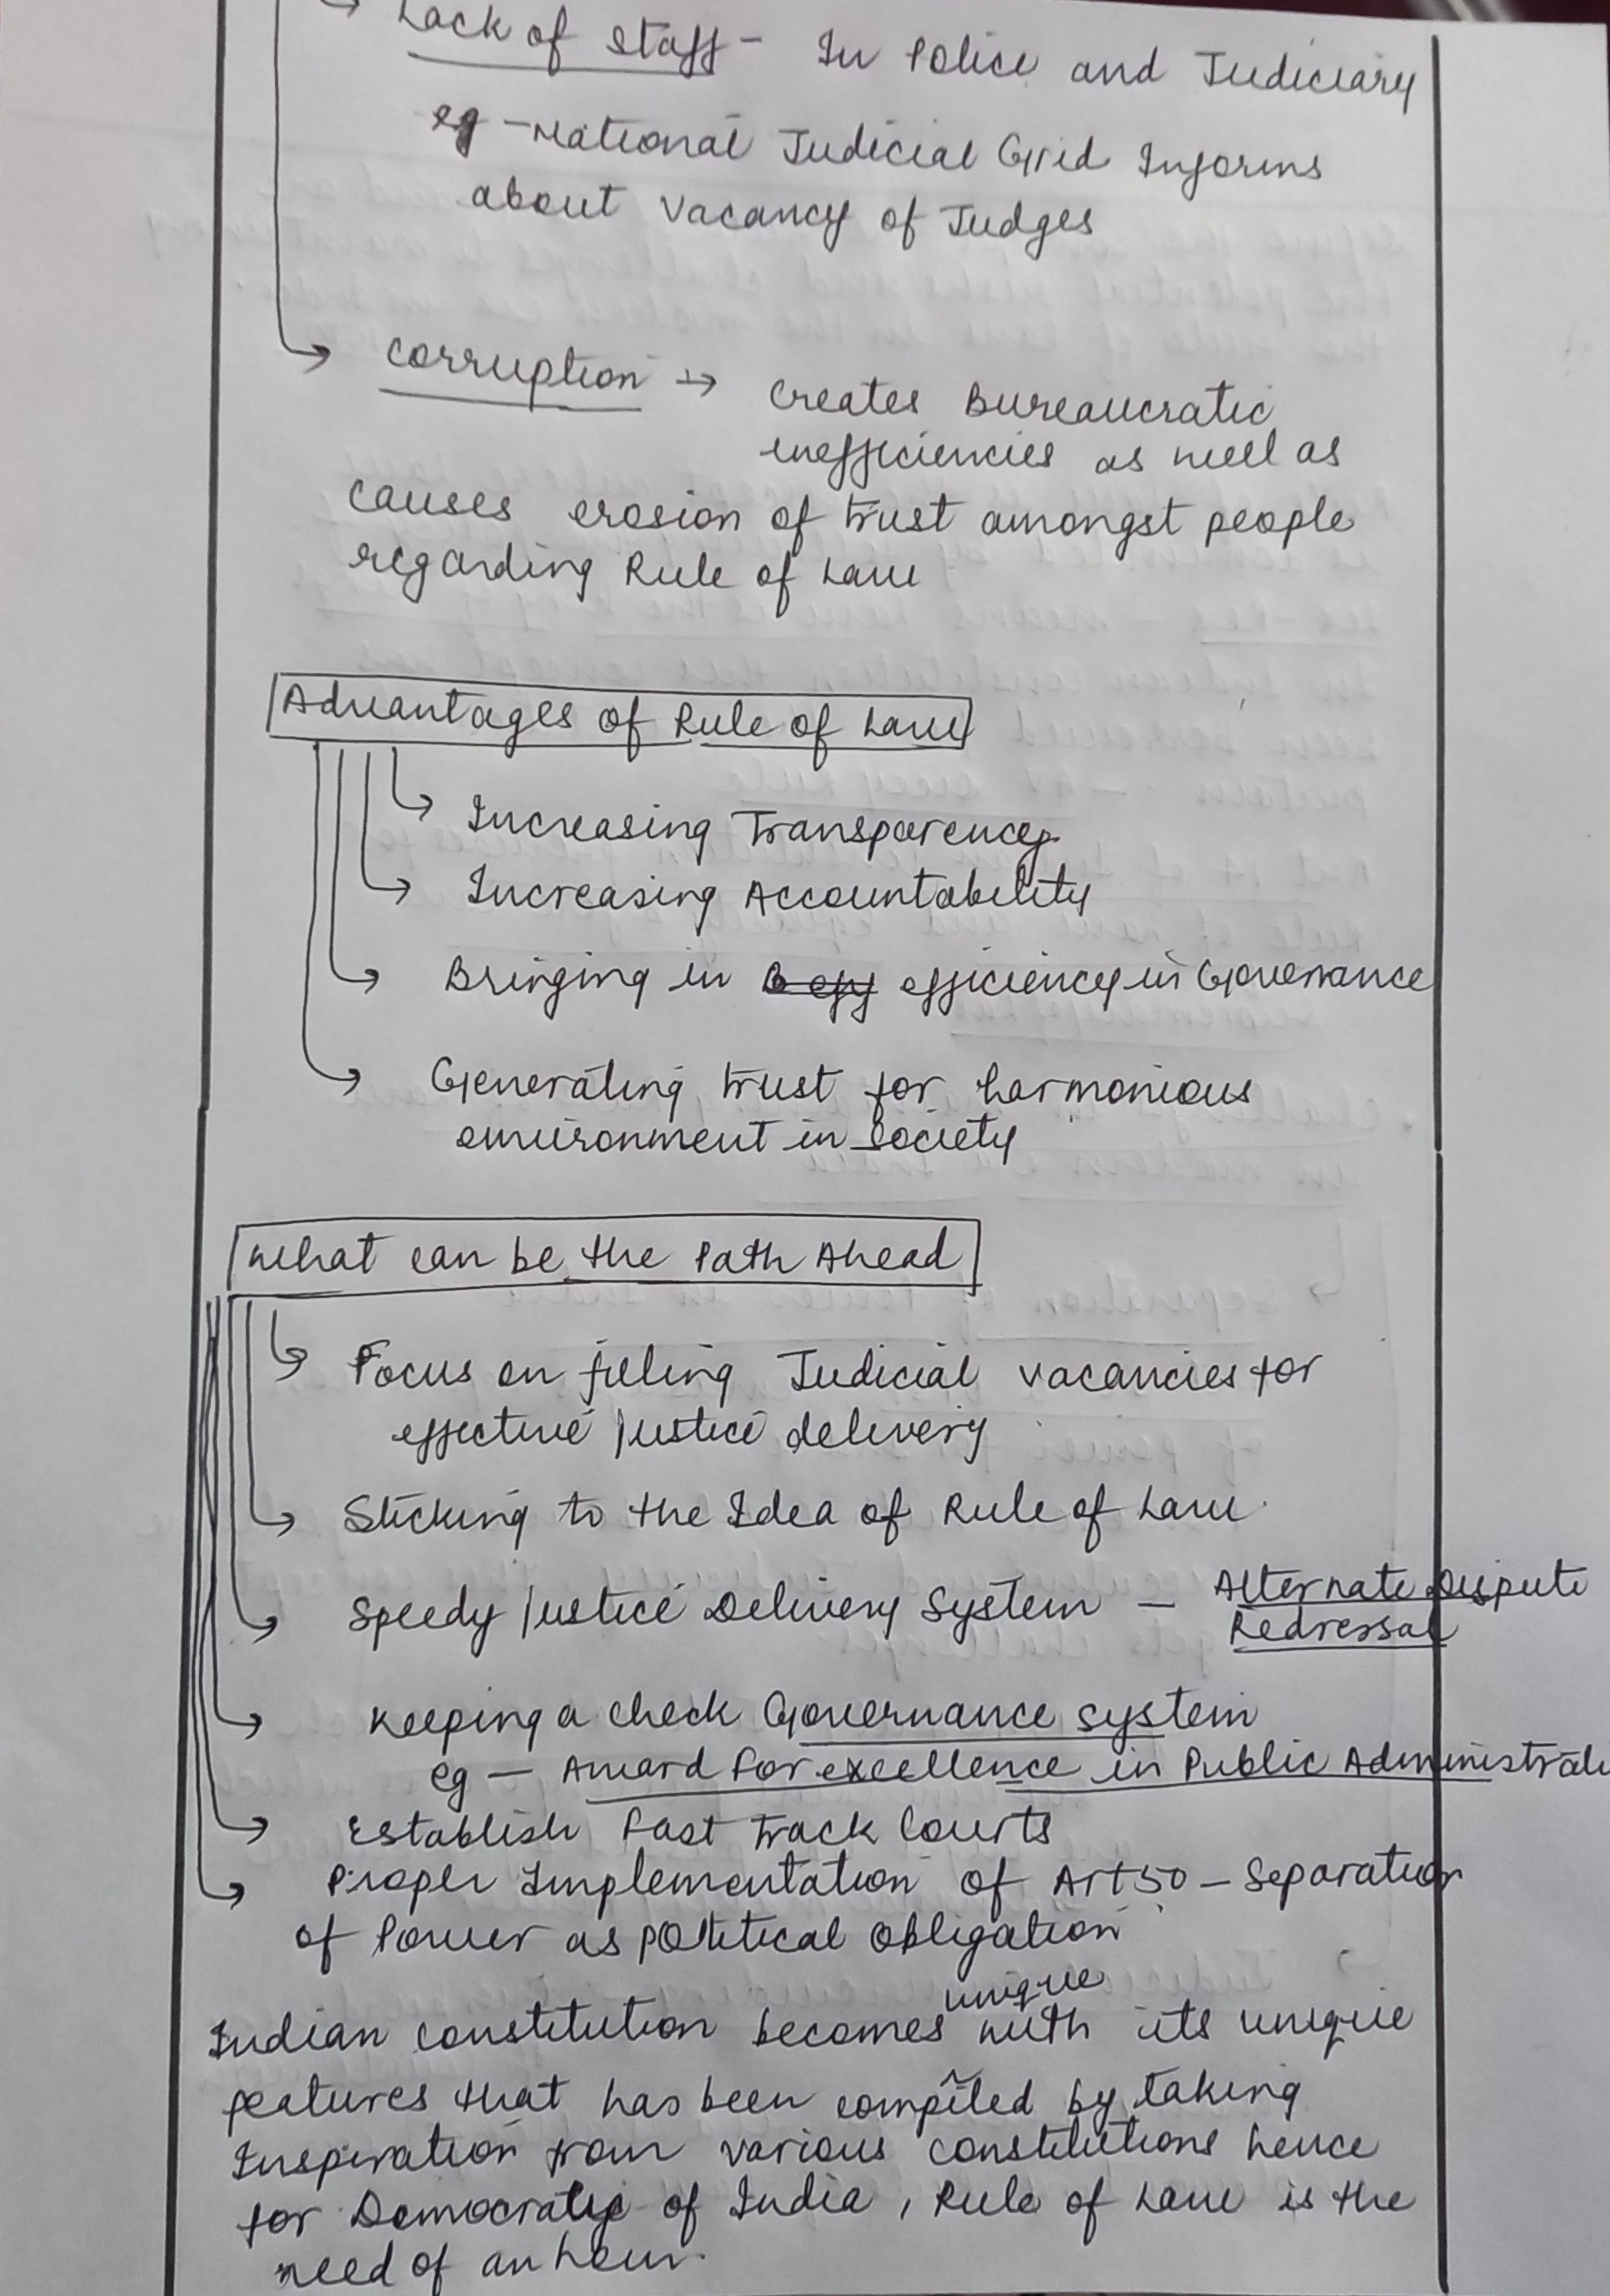 → Lack of Staff - In Police and Judiciary
eg - National Judicial Grid Informs
about vacancy of Judges
→ Corruption → Creates Bureaucratic
inefficiencies as well as
causes erosion of trust amongst people
regarding Rule of Law
Advantages of Rule of Law
→ Increasing Transparency
→ Increasing Accountability
→ Bringing in efficiency in Governance
→ Generating trust for harmonious
environment in Society
What can be the Path Ahead
→ Focus on filling Judicial vacancies for
effective Justice delivery
→ Sticking to the Idea of Rule of Law.
→ Speedy Justice Delivery System - Alternate Dispute
Redressal
→ Keeping a check Governance system
eg - Award for excellence in Public Administrati
→ Establish Fast Track Courts
→ Proper Implementation of Art 50 - Separation
of Power as political obligation
unique
Indian constitution becomes with its unique
features that has been compiled by taking
Inspiration from various constitutions hence
for Democratic of India, Rule of Law is the
need of an hour.